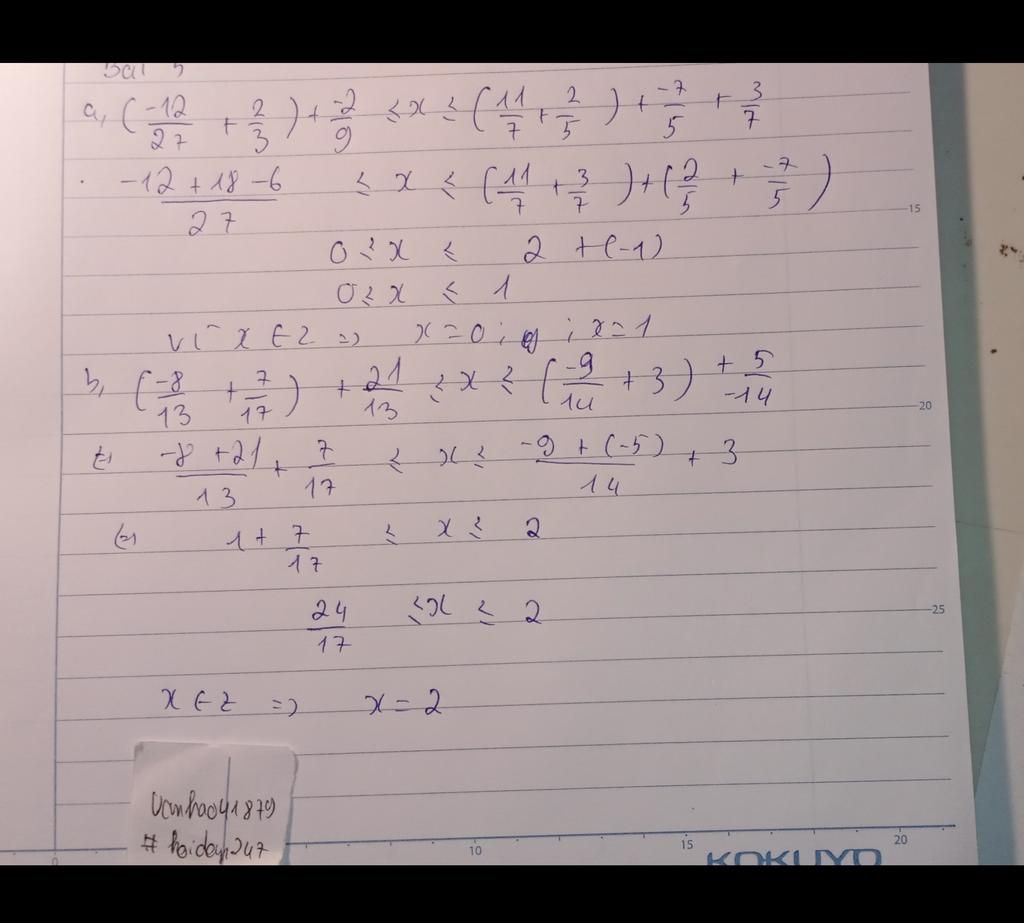 Bài 5
a, (-12/27 + 2/3) + -2/9 ≤ x ≤ (11/7 + 2/5) + -7/5 + 3/7
-12 + 18 - 6/27 ≤ x ≤ (11/7 + 3/7) + (2/5 + -7/5)
15
0 ≤ x ≤ 2 + (-1)
0 ≤ x ≤ 1
Vì x ∈ Z => x = 0 ; ; x = 1
b, (-8/13 + 7/17) + 21/13 ≤ x ≤ (-9/14 + 3) + 5/-14
20
-8 + 21/13 + 7/17 ≤ x ≤ -9 + (-5)/14 + 3
1 + 7/17 ≤ x ≤ 2
24/17 ≤ x ≤ 2
25
x ∈ Z => x = 2
#hoidap247
0 10 15 20
KOKUYO